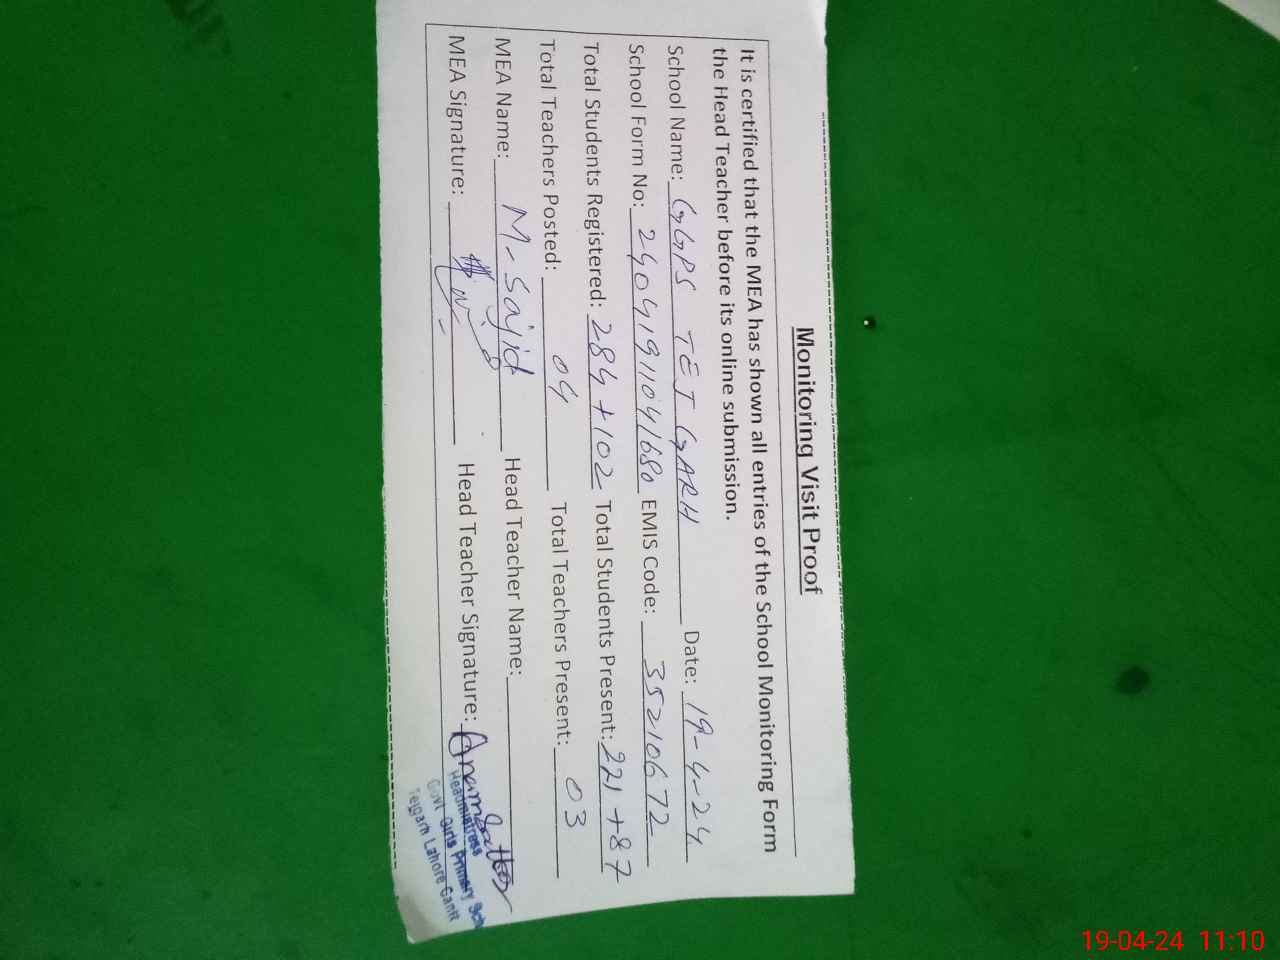 Monitoring Visit Proof
It is certified that the MEA has shown all entries of the School Monitoring Form
the Head Teacher before its online submission.
School Name: GGPS TEJ GARH Date: 19-4-24
School Form No: 24041911041680 EMIS Code: 35210672
Total Students Registered: 284+102 Total Students Present: 221+87
Total Teachers Posted: 04 Total Teachers Present: 03
MEA Name: M-Sajid Head Teacher Name:
MEA Signature: Head Teacher Signature: Anam Sattar
Headmistress
Govt Girls Primary Sch
Tejgarh Lahore Cantt
19-04-24 11:10